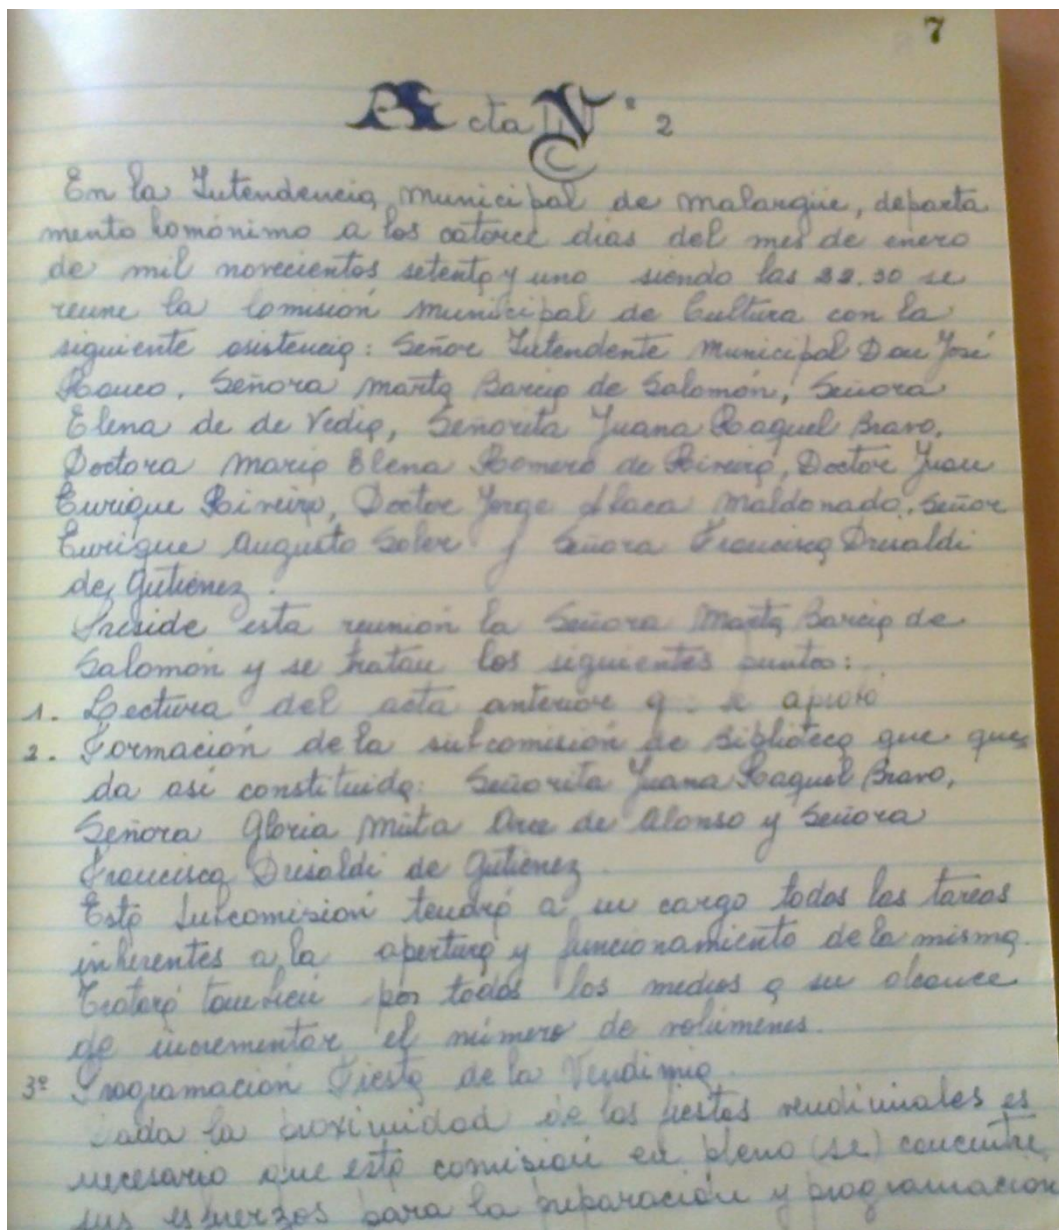 7
Acta Nº 2
En la Intendencia Municipal de Malargüe, departa
mento homónimo a los catorce días del mes de enero
de mil novecientos setenta y uno siendo las 22.30 se
reune la Comisión Municipal de Cultura con la
siguiente asistencia: Señor Intendente Municipal Don José
Ranco, Señora Marta Barcia de Salomón, Señora
Elena de de Vedia, Señorita Juana Raquel Bravo,
Doctora María Elena Romero de Rineiro, Doctor Juan
Enrique Rineiro, Doctor Jorge Maldonado, Señor
Enrique Augusto Soler y Señora Francisca Drisaldi
de Gutiérrez.
Preside esta reunión la Señora Marta Barcia de
Salomón y se tratan los siguientes puntos:
1. Lectura del acta anterior q. se aprobó
2. Formación de la subcomisión de Biblioteca que que
da así constituida: Señorita Juana Raquel Bravo,
Señora Gloria Mirta Arce de Alonso y Señora
Francisca Drisaldi de Gutiérrez.
Esta Subcomisión tendrá a su cargo todas las tareas
inherentes a la apertura y funcionamiento de la misma.
Tratará también por todos los medios a su alcance
de incrementar el número de volúmenes.
3º Programación Fiesta de la Vendimia.
Dada la proximidad de las fiestas vendimiales es
necesario que esta comisión en pleno (se) concentre
sus esfuerzos para la preparación y programación